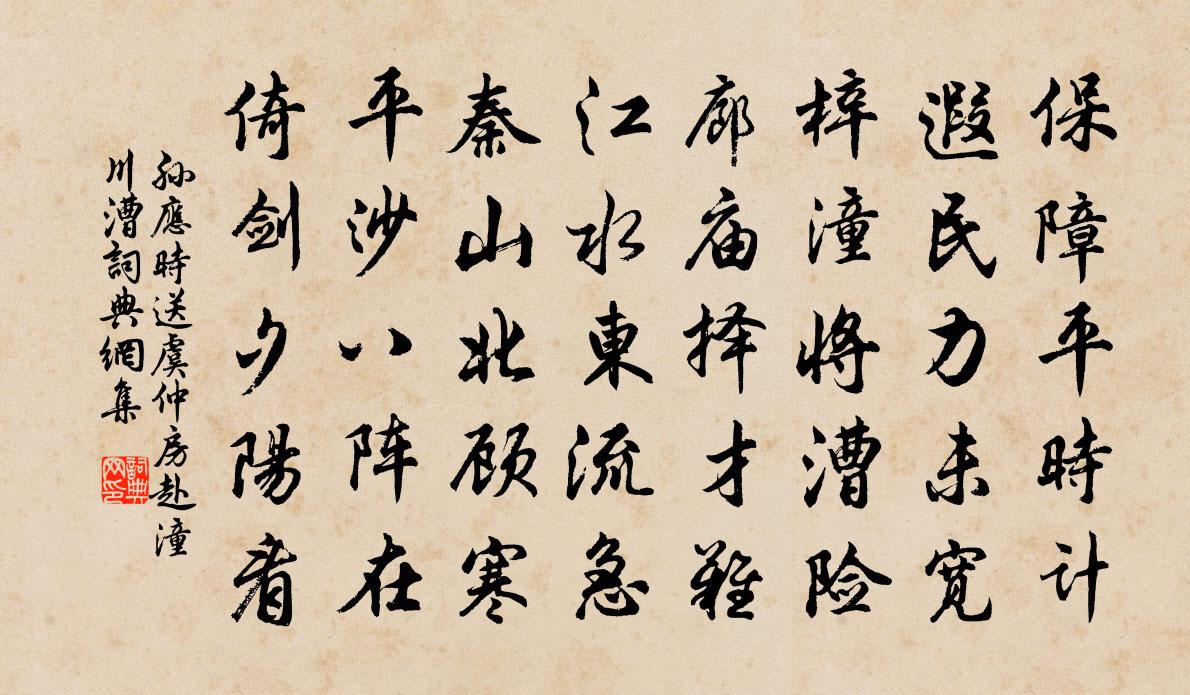 保障平時计
遐民力未寬
梓潼將漕险
廊庙择才難
江水東流急
秦山北顾寒
平沙八阵在
倚剑夕陽看
孙應時送虞仲房赴潼
川漕詞典網集
詞典
网印